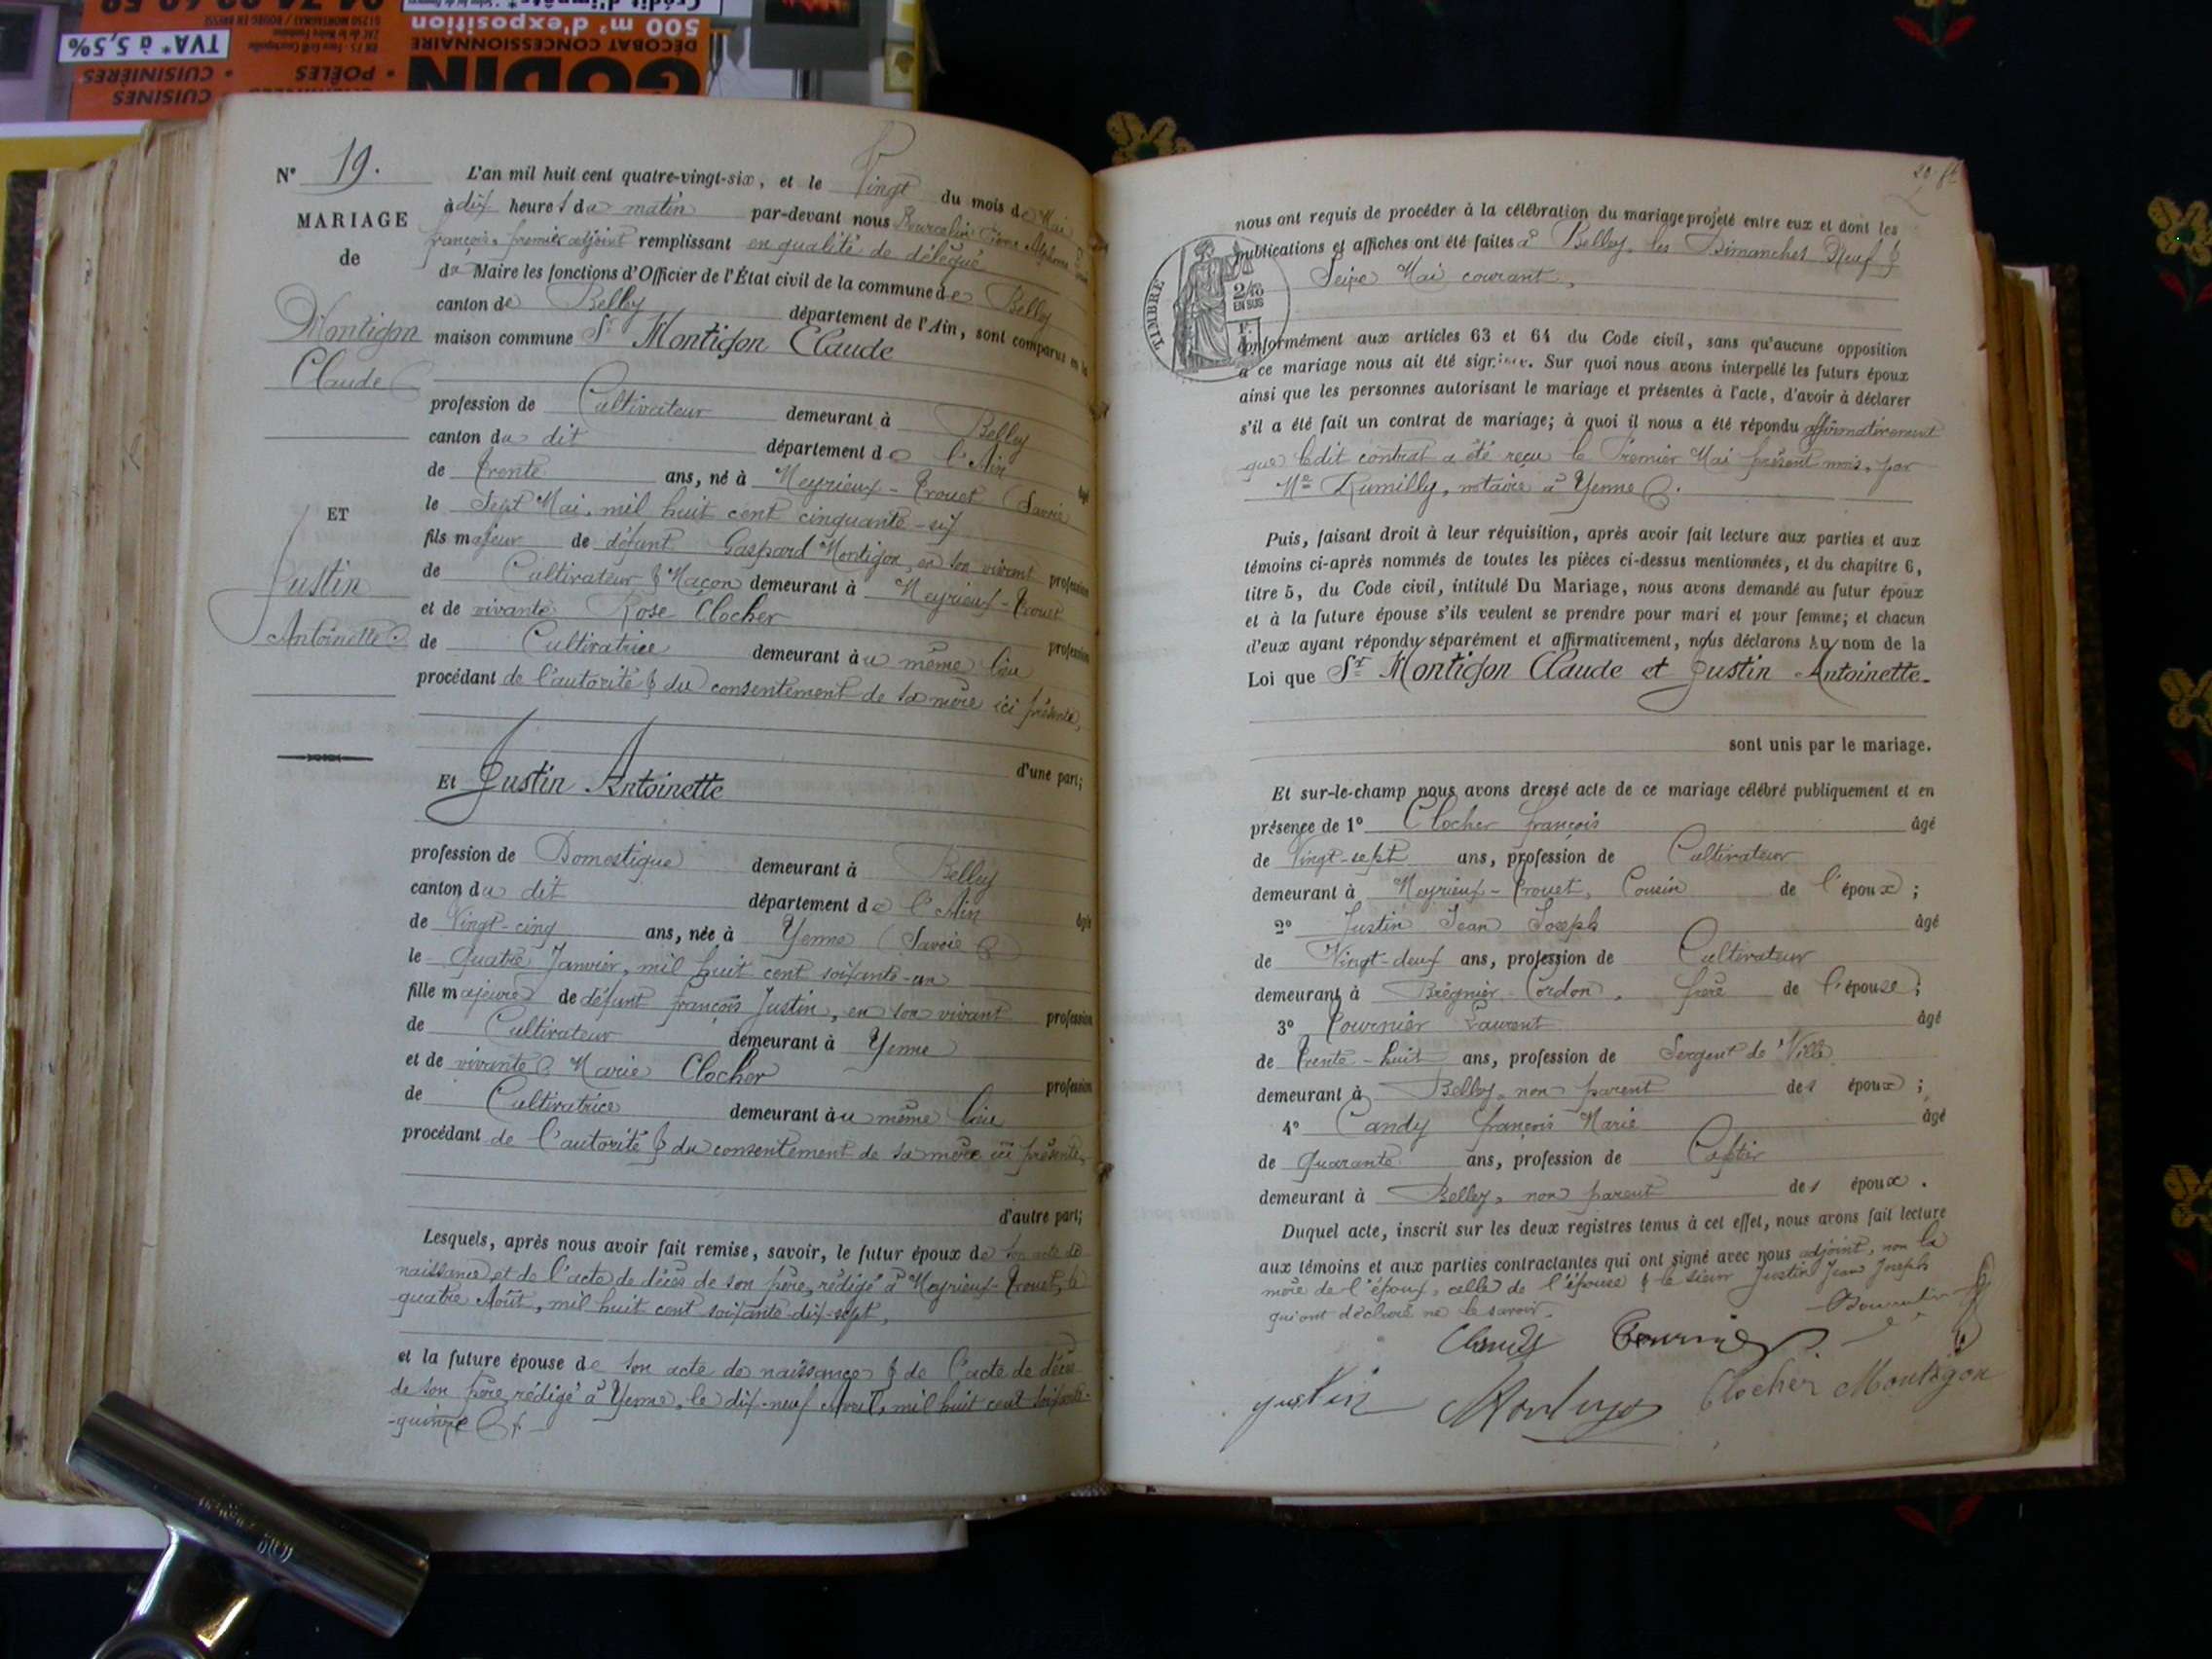 GODIN
DÉCOBAT CONCESSIONNAIRE
500 m² d'exposition
Crédit d'impôts*
TVA* à 5,5%
• POÊLES
CUISINES
• CUISINIÈRES
N° 19.
MARIAGE
de
Montigon
Claude
ET
Justin
Antoinette
L'an mil huit cent quatre-vingt-six, et le Vingt du mois de Mai
à dix heures du matin par-devant nous
françois, premier adjoint remplissant en qualité de délégué
du Maire les fonctions d'Officier de l'État civil de la commune de Belley
canton de Belley département de l'Ain, sont comparus en la
maison commune Sr Montigon Claude
profession de Cultivateur demeurant à Belley
canton du dit département de l'Ain âgé
de trente ans, né à Meyrieux-Trouet (Savoie
le Sept Mai, mil huit cent cinquante-six
fils majeur de défunt Gaspard Montigon, en son vivant profession
de Cultivateur & Maçon demeurant à Meyrieux-Trouet
et de vivante Rose Clocher profession
de Cultivatrice demeurant au même lieu
procédant de l'autorité & du consentement de sa mère ici présente,
d'une part;
Et Justin Antoinette
profession de Domestique demeurant à Belley
canton du dit département de l'Ain âgée
de Vingt-cinq ans, née à Yenne (Savoie)
le Quatre Janvier, mil huit cent soixante-un
fille majeure de défunt françois Justin, en son vivant profession
de Cultivateur demeurant à Yenne
et de vivante Marie Clocher profession
de Cultivatrice demeurant au même lieu
procédant de l'autorité & du consentement de sa mère ici présente,
d'autre part;
Lesquels, après nous avoir fait remise, savoir, le futur époux de son acte de
naissance et de l'acte de décès de son père, rédigé à Meyrieux-Trouet, le
quatre Août, mil huit cent soixante-dix-sept,
et la future épouse de son acte de naissance & de l'acte de décès
de son père rédigé à Yenne, le dix-neuf Avril, mil huit cent soixante-
-quinze
nous ont requis de procéder à la célébration du mariage projeté entre eux et dont les
publications et affiches ont été faites à Belley, les Dimanches Neuf &
Seize Mai courant,
TIMBRE
2/10
EN SUS
conformément aux articles 63 et 64 du Code civil, sans qu'aucune opposition
à ce mariage nous ait été signifiée. Sur quoi nous avons interpellé les futurs époux
ainsi que les personnes autorisant le mariage et présentes à l'acte, d'avoir à déclarer
s'il a été fait un contrat de mariage; à quoi il nous a été répondu affirmativement
que ledit contrat a été reçu le Premier Mai présent mois, par
Me Rumilly, notaire à Yenne.
Puis, faisant droit à leur réquisition, après avoir fait lecture aux parties et aux
témoins ci-après nommés de toutes les pièces ci-dessus mentionnées, et du chapitre 6,
titre 5, du Code civil, intitulé Du Mariage, nous avons demandé au futur époux
et à la future épouse s'ils veulent se prendre pour mari et pour femme; et chacun
d'eux ayant répondu séparément et affirmativement, nous déclarons Au nom de la
Loi que Sr Montigon Claude et Justin Antoinette.
sont unis par le mariage.
Et sur-le-champ nous avons dressé acte de ce mariage célébré publiquement et en
présence de 1° Clocher françois âgé
de Vingt-sept ans, profession de Cultivateur
demeurant à Meyrieux-Trouet, Cousin de l'époux;
2° Justin Jean Joseph âgé
de Vingt-deux ans, profession de Cultivateur
demeurant à Brégnier-Cordon, frère de l'épouse;
3° Tournier Laurent âgé
de trente-huit ans, profession de Sergent de Ville
demeurant à Belley, non parent des époux;
4° Candy françois Marie âgé
de Quarante ans, profession de
demeurant à Belley, non parent des époux.
Duquel acte, inscrit sur les deux registres tenus à cet effet, nous avons fait lecture
aux témoins et aux parties contractantes qui ont signé avec nous adjoint, non la
mère de l'époux, celle de l'épouse & le sieur Justin Jean Joseph
qui ont déclaré ne le savoir.
Candy Tournier
justin Clocher Montigon